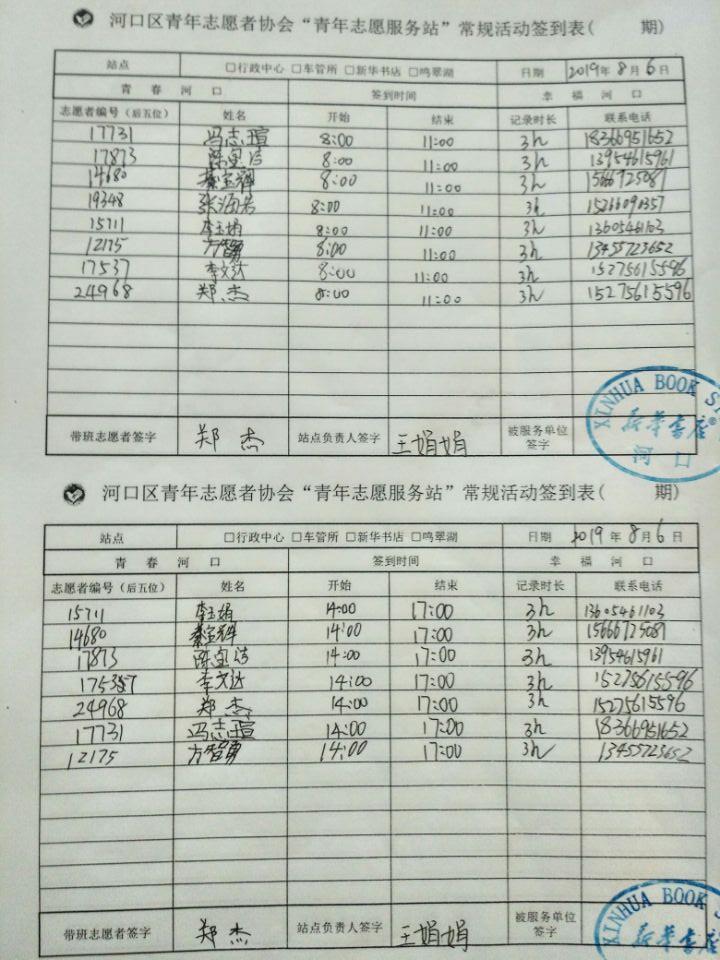 河口区青年志愿者协会“青年志愿服务站”常规活动签到表( 期)
站点 □行政中心 □车管所 □新华书店 □鸣翠湖 日期 2019年8月6日
青 春 河 口 签到时间 幸 福 河 口
志愿者编号(后五位) 姓名 开始 结束 记录时长 联系电话
17731 冯志瑄 8:00 11:00 3h 18366951652
17873 陈宝洁 8:00 11:00 3h 13954615961
14680 綦宝辉 8:00 11:00 3h 15666725081
19348 张海岩 8:00 11:00 3h 15266090357
15711 李玉娟 8:00 11:00 3h 13605461103
12175 方智勇 8:00 11:00 3h 13455723652
17537 李文达 8:00 11:00 3h 15275615596
24968 郑杰 8:00 11:00 3h 15275615596
带班志愿者签字 郑杰 站点负责人签字 王娟娟 被服务单位签字
XINHUA BOOK
新华书店
河口
河口区青年志愿者协会“青年志愿服务站”常规活动签到表( 期)
站点 □行政中心 □车管所 □新华书店 □鸣翠湖 日期 2019年8月6日
青 春 河 口 签到时间 幸 福 河 口
志愿者编号(后五位) 姓名 开始 结束 记录时长 联系电话
15711 李玉娟 14:00 17:00 3h 13605461103
14680 綦宝辉 14:00 17:00 3h 15666725081
17873 陈宝洁 14:00 17:00 3h 13954615961
李文达 14:00 17:00 3h 15275615596
24968 郑杰 14:00 17:00 3h 15275615596
17731 冯志瑄 14:00 17:00 3h 18366951652
12175 方智勇 14:00 17:00 3h 13455723652
带班志愿者签字 郑杰 站点负责人签字 王娟娟 被服务单位签字
XINHUA BOOK
新华书店